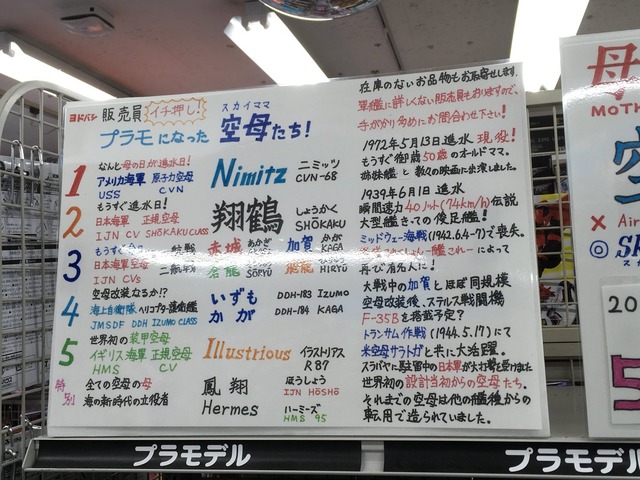 ヨドバシ 販売員 イチ押し!
プラモになった 空母たち!
スカイママ
在庫のないお品物もお取寄せします。
軍艦に詳しくない販売員もおりますので、
手がかり多めにお問合わせ下さい!
1 なんと母の日が進水日!
アメリカ海軍 原子力空母
USS CVN
Nimitz ニミッツ
CVN-68
1972年5月13日進水 現役!
もうすぐ御歳50歳のオールドママ。
姉妹艦と数々の映画に出演しました。
2 もうすぐ進水日!
日本海軍 正規空母
IJN CV SHŌKAKU CLASS
翔鶴 しょうかく
SHŌKAKU
1939年6月1日 進水
瞬間速力40ノット(74km/h)伝説
大型艦きっての俊足艦!
3 もうすぐ
日本海軍空母 一航戦
二航戦
IJN CVs
赤城 あかぎ AKAGI 加賀 かが KAGA
蒼龍 そうりゅう SŌRYŪ 飛龍 HIRYŪ
ミッドウェー海戦(1942.6.4-7)で喪失。
によって
再び有名人に!
4 空母改装なるか!?
海上自衛隊 ヘリコプター護衛艦
JMSDF DDH IZUMO CLASS
いずも DDH-183 IZUMO
かが DDH-184 KAGA
大戦中の加賀とほぼ同規模
空母改装後、ステルス戦闘機
F-35Bを搭載予定?
5 世界初の装甲空母
イギリス海軍 正規空母
HMS CV
Illustrious イラストリアス
R87
トランサム作戦(1944.5.17)にて
米空母サラトガと共に大活躍。
スラバヤに駐留中の日本軍が大打撃を受けました
特別 全ての空母の母
海の新時代の立役者
鳳翔 ほうしょう
IJN HŌSHŌ
Hermes ハーミーズ
HMS 95
世界初の設計当初からの空母たち。
それまでの空母は他の艦種からの
転用で造られていました。
母
MOT
空
× Air
◎ SK
20
プラモデル
プラモデル